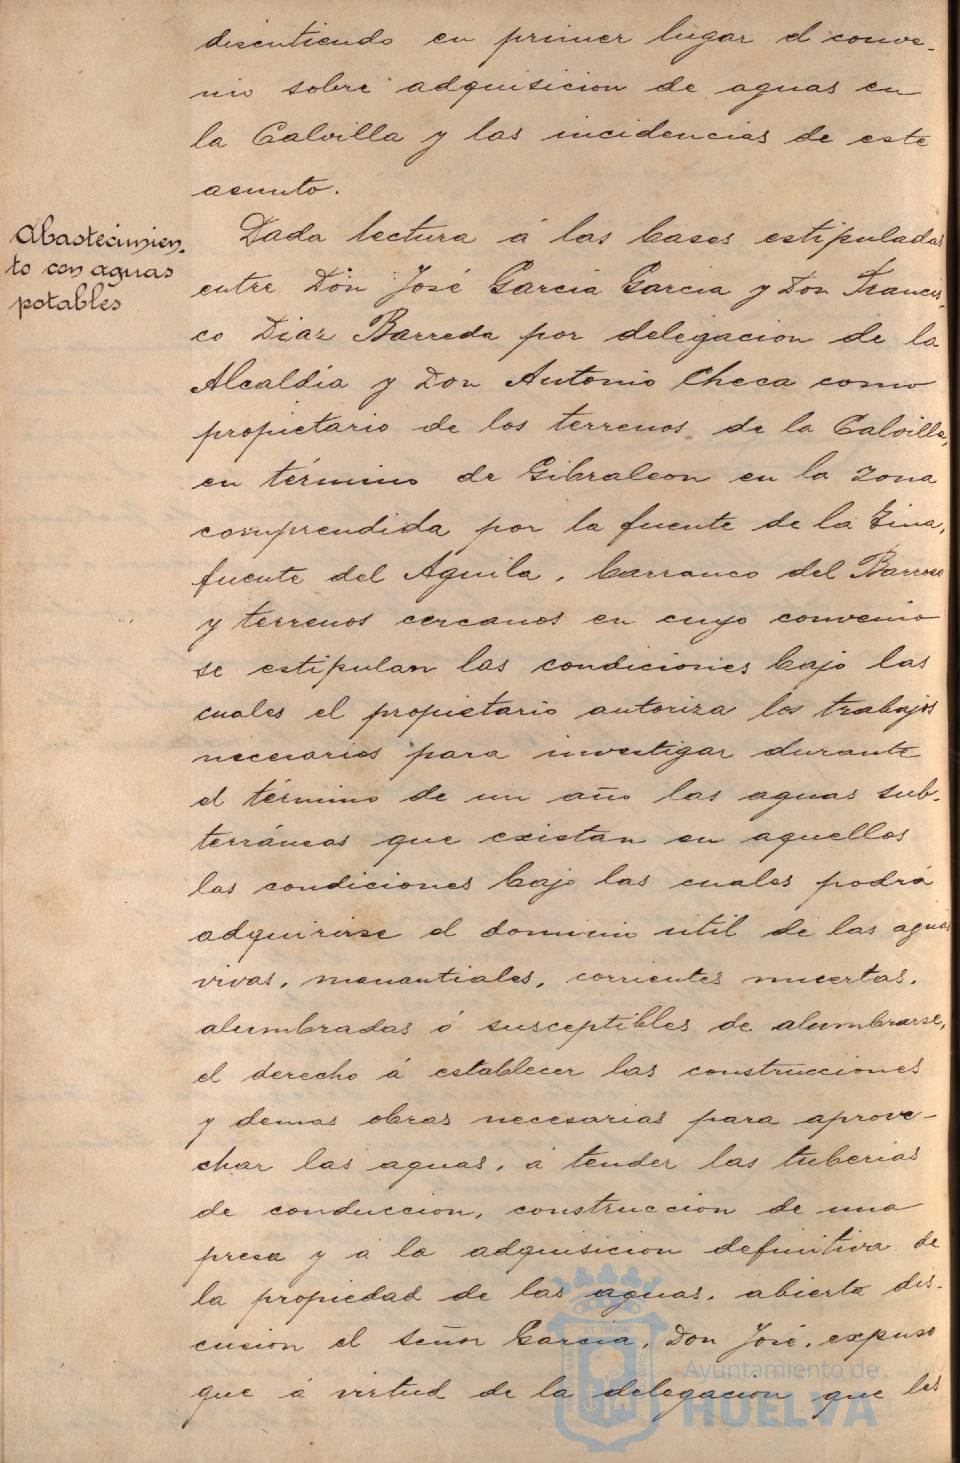 discutiendo en primer lugar el conve-
nio sobre adquisicion de aguas en
la Calvilla y las incidencias de este
asunto.
Abastecimien-
to con aguas
potables
Dada lectura á las bases estipuladas
entre Don José Garcia Garcia y Don Francis-
co Diaz Barreda por delegacion de la
Alcaldia y Don Antonio Checa como
propietario de los terrenos de la Calvilla,
en término de Gibraleon en la zona
comprendida por la fuente de la
fuente del Aguila, barranco del Barroso
y terrenos cercanos en cuyo convenio
se estipulan las condiciones bajo las
cuales el propietario autoriza los trabajos
necesarios para investigar durante
el término de un año las aguas sub-
terráneas que existan en aquellos
las condiciones bajo las cuales podrá
adquirirse el dominio util de las aguas
vivas, manantiales, corrientes muertas,
alumbradas ó susceptibles de alumbrarse,
el derecho á establecer las construcciones
y demas obras necesarias para aprove-
char las aguas, á tender las tuberias
de conduccion, construccion de una
presa y á la adquisicion definitiva de
la propiedad de las aguas, abierta dis-
cusion el señor Garcia, Don José, expuso
que á virtud de la delegacion que les
Ayuntamiento de
HUELVA